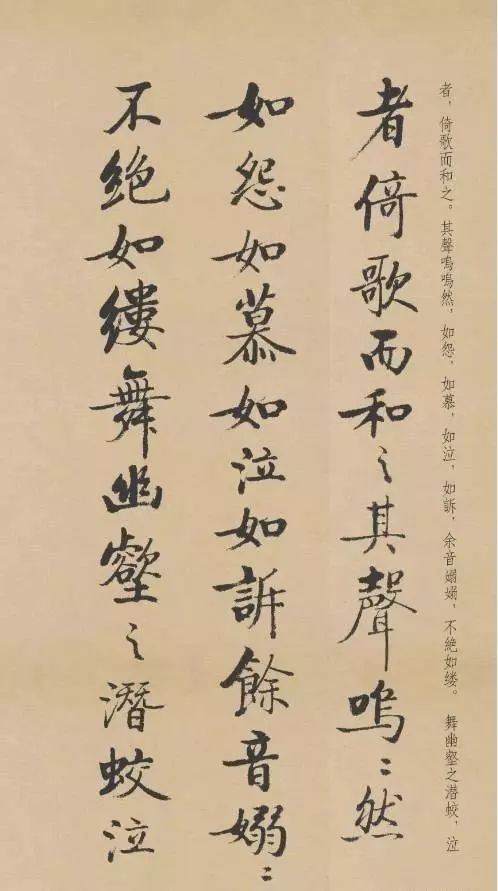 者，倚歌而和之。其聲嗚嗚然，如怨、如慕，如泣，如訴，余音嫋嫋，不絶如缕。 舞幽壑之潛蛟，泣
者倚歌而和之其聲嗚〻然
如怨如慕如泣如訴餘音嫋〻
不絶如縷舞幽壑之潛蛟泣